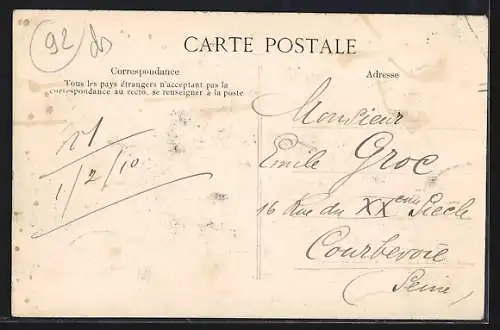 92
CARTE POSTALE
Correspondance
Tous les pays étrangers n'acceptant pas la
correspondance au recto, se renseigner à la poste
Adresse
1/2/10
Monsieur
Emile Groc
16 Rue du XXeme Siècle
Courbevoie
(Seine)